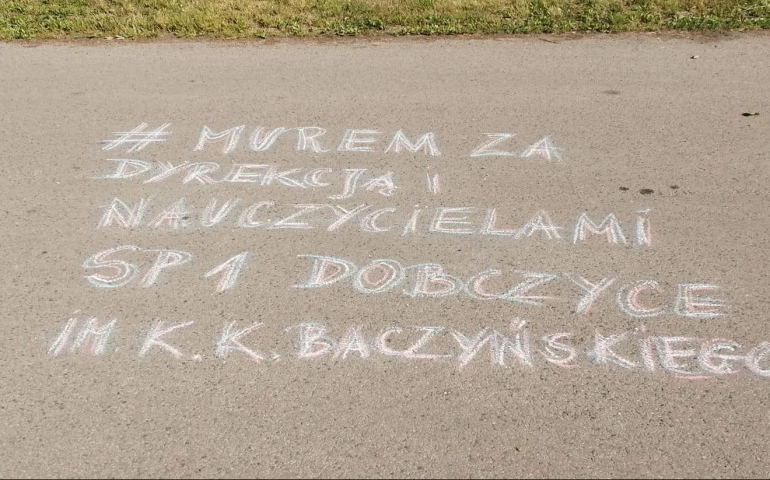 # MUREM ZA
DYREKCJĄ i
NAUCZYCIELAMI
SP 1 DOBCZYCE
IM. K.K. BACZYŃSKIEGO